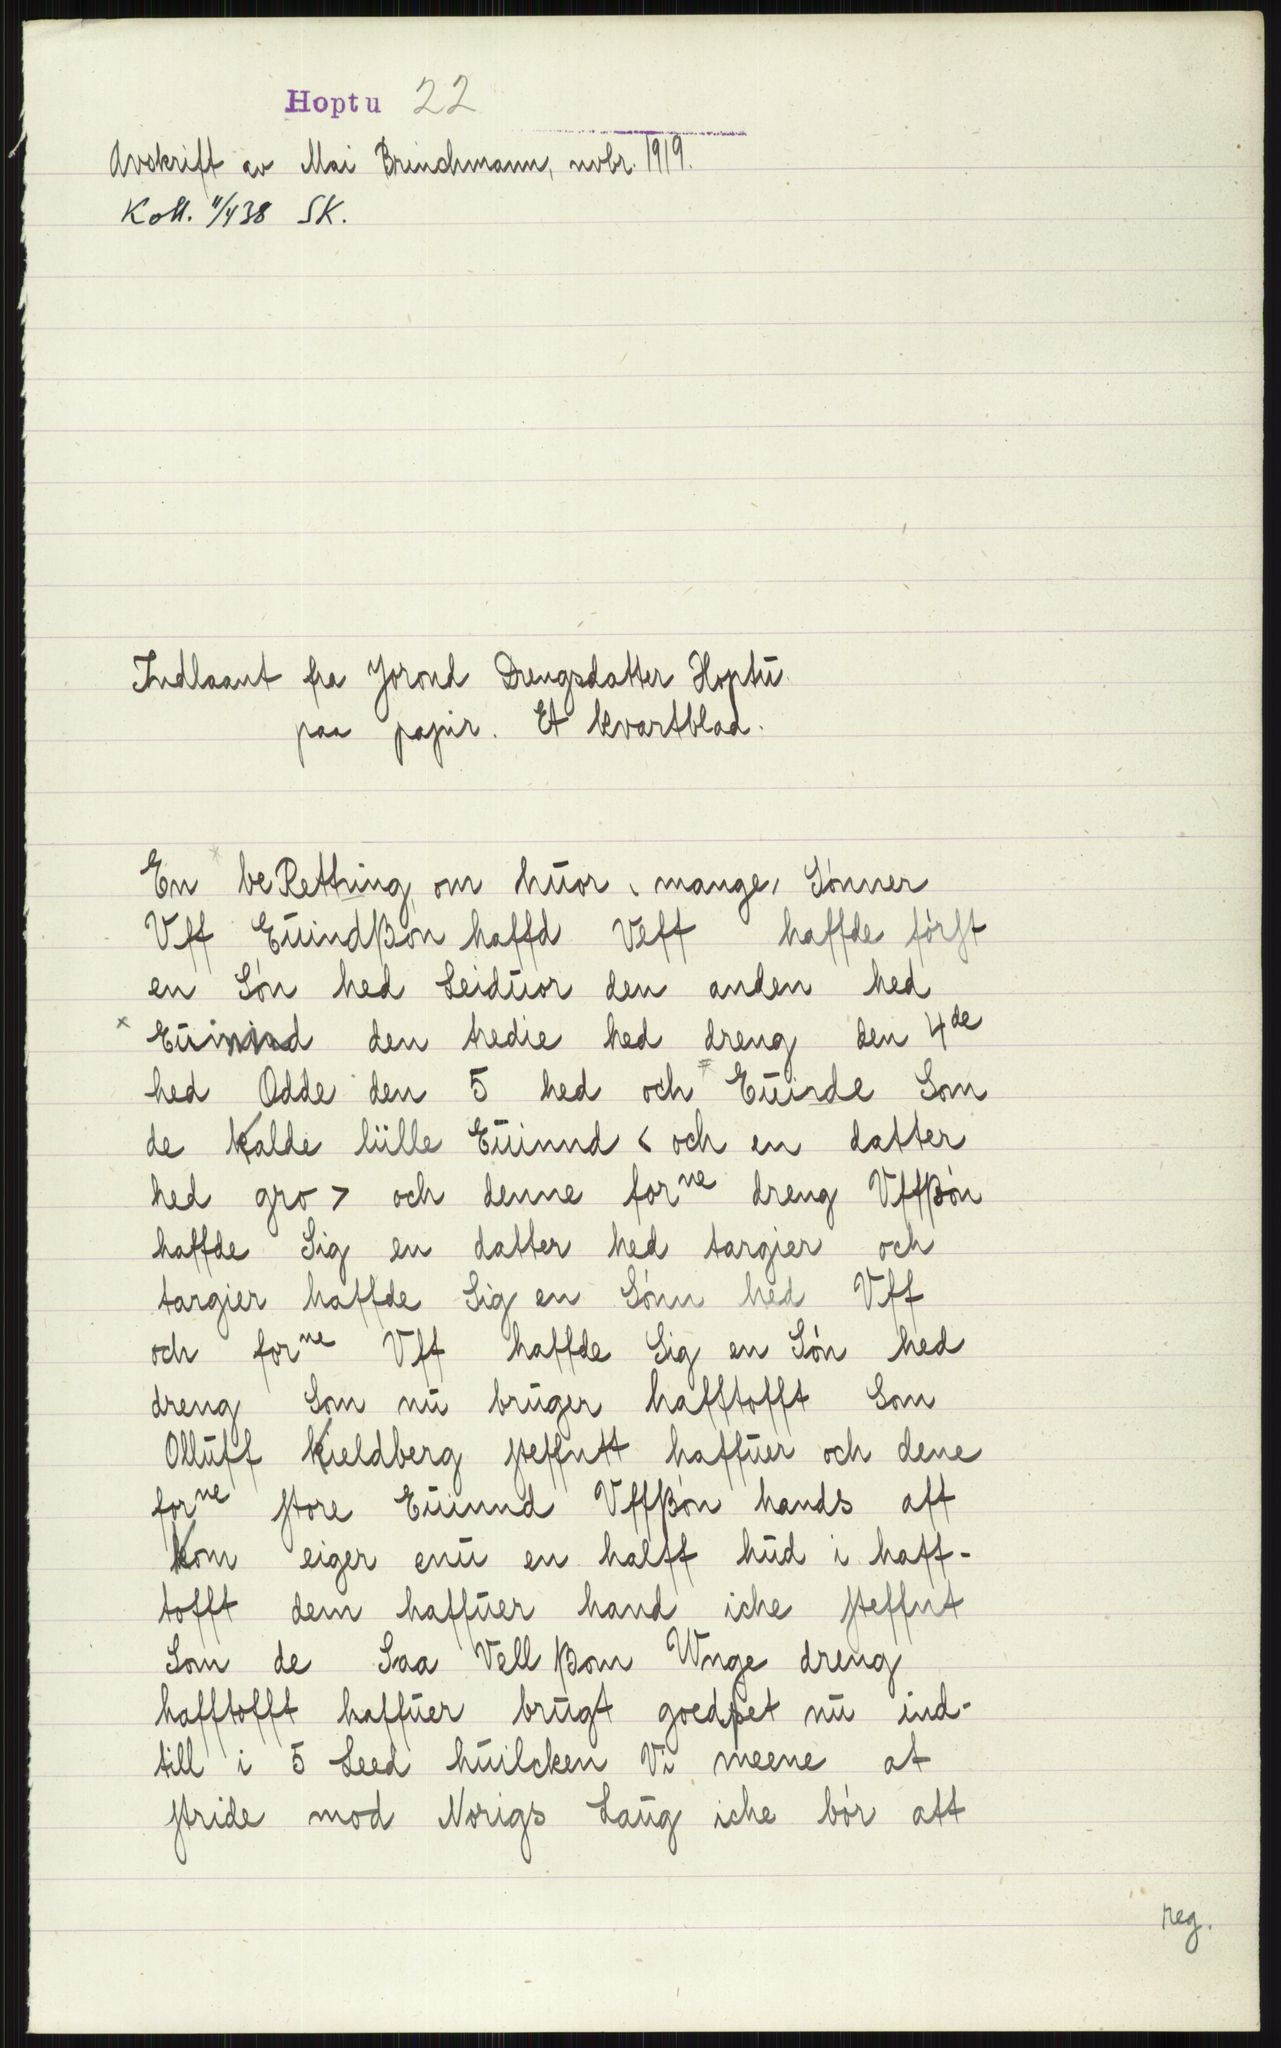 Hoptu 22
Avskrift av Mai Brinchmann, nvbr. 1919.
Koll. 11/4 38 SK.
Indlaant fra Jorond Drengsdatter Hoptu
paa papir. Et kvartblad.
En beRettning om huor, mange, Sønner
Vff Euindßon haffd Veff haffde først
en Søn hed Leiduor den anden hed
Euinnd den tredie hed dreng den 4de
hed Odde den 5 hed och Euinde Som
de kalde lülle Euinnd < och en datter
hed gro > och denne forne dreng Vffßøn
haffde Sig en datter hed targier och
targier haffde Sig en Sønn hed Vff
och forne Vff haffde Sig en Søn hed
dreng Som nu bruger hafftofft Som
Olluff Kieldberg steffntt haffuer och dene
forne store Euinnd Vffßøn hands aff
kom eiger enu en halff hud i haff-
tofft dem haffuer hand iche steffnt
Som de Saa Vell ßom Wnge dreng
hafftofft haffuer brugt goedset nu ind-
till i 5 Leed huilcken Vi meene at
stride mod Norigs Laug iche bør att
reg.